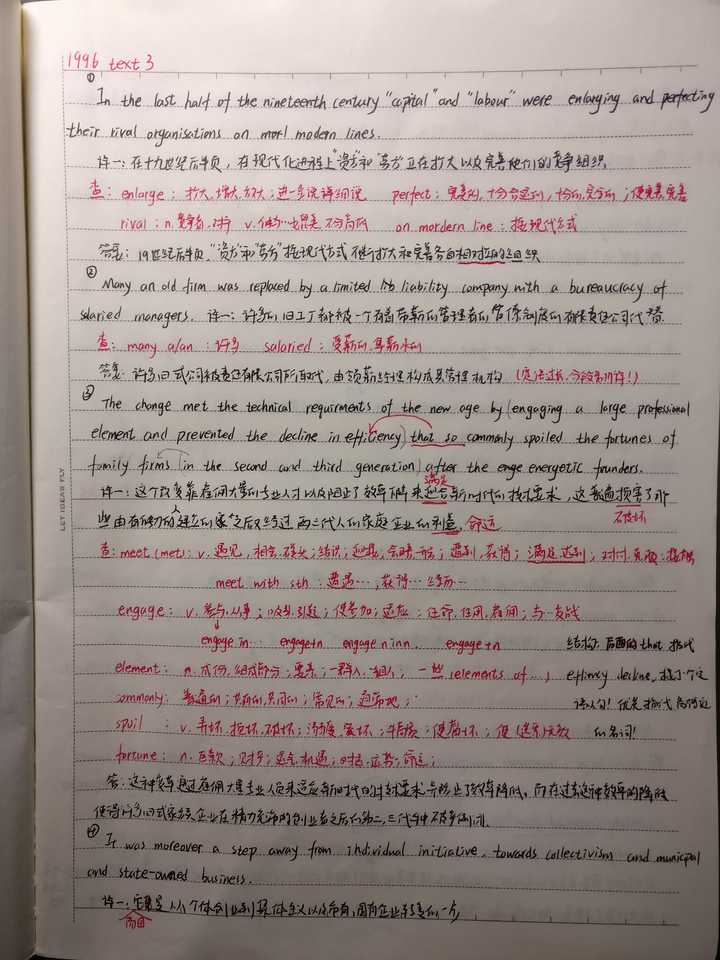 1996 text 3
①
In the last half of the nineteenth century "capital" and "labour" were enlarging and perfecting
their rival organisations on modern lines.
译一：在十九世纪后半页，在现代化进程上"资方"和"劳方"正在扩大以及完善他们的竞争组织
查：enlarge：扩大，增大，放大；进一步说，详细说 perfect：完美的，十分合适的，十分的，完全的；使完美，完善
rival：n.竞争者，对手 v. on mordern line：按现代方式
答案：19世纪后半页，"资方"和"劳方"按现代方式不断扩大和完善各自相对应的组织
②
Many an old firm was replaced by a limited liability company with a bureaucracy of
salaried managers. 译一：许多的旧工厂都被一个有着带薪的管理者的官僚制度的有限责任公司代替.
查：many a/an：许多 salaried：受薪的，拿薪水的
答案：许多旧式公司被责任有限公司所取代，由领薪经理构成其管理机构
③
The change met the technical requirments of the new age by (engaging a large professional
element and prevented the decline in efficiency) that so commonly spoiled the fortunes of
family firms (in the second and third generation) after the energetic founders.
满足
译一：这个改变靠雇佣大量的专业人才以及阻止了效率下降来迎合新时代的技术要求，这普遍损害了那
些由有的建立的家之后又经过两三代人的家庭企业的利益，命运
不破坏
查：meet (met)：v.遇见，相会，碰头；结识；迎接，会晤；遭到，获得；满足，达到；对付
meet with sth：遭遇…，获得…经历…
engage：v.参与，从事；吸引，引起；使参加；适应；任命，任用，雇佣；与…交战
engage in… engage+n engage n in n. engage+n
结构：后面的that指代
element：n.成份，组成部分；要素；一群人，一组人；一些 (elements of…)
commonly：普遍的；共有的，共同的；常见的；通常地；
spoil：v.弄坏，损坏，破坏；溺爱，宠坏；
的名词!
fortune：n.巨款；财产；运气，机遇；时运，运势；命运；
答：这种改革通过雇佣大量专业人员来适应新时代的技术要求，并防止了效率降低，而在过去这种效率的降低
使得许多旧式家族企业在精力充沛的创业者之后的第二、三代手中不破产
④
It was moreover a step away from individual initiative, towards collectivism and municpal
and state-owned business.
译一：从个体创业到集体主义以及市有，国有企业
而且
LET IDEAS FLY